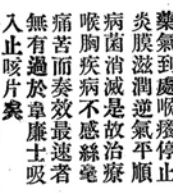 藥氣到處喉癢停止
炎膜滋潤逆氣平順
病菌消滅是故治療
喉胸疾病不感絲毫
痛苦而奏效最速者
無有過於韋廉士吸
入止咳片矣